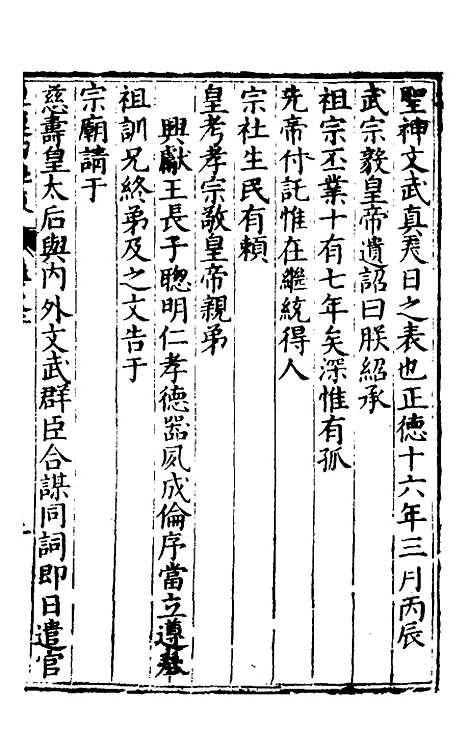 聖神文武真天日之表也正德十六年三月丙辰
武宗毅皇帝遺詔曰朕紹承
祖宗丕業十有七年矣深惟有孤
先帝付託惟在繼統得人
宗社生民有賴
皇考孝宗敬皇帝親弟
興獻王長子聰明仁孝德器夙成倫序當立遵奉
祖訓兄終弟及之文告于
宗廟請于
慈壽皇太后與內外文武群臣合謀同詞即日遣官